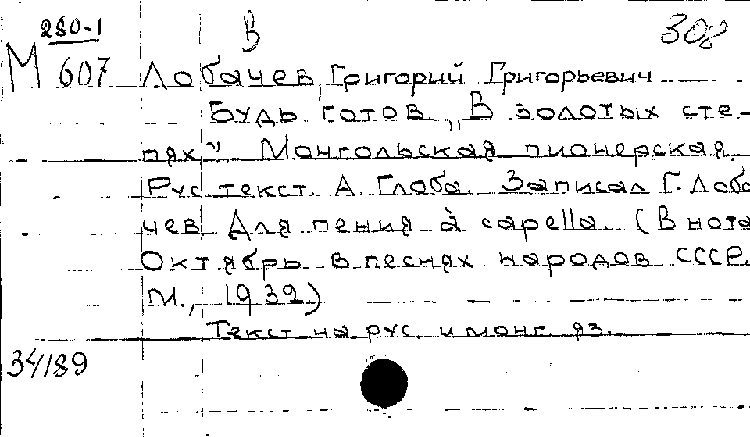 280-1
В
308
М 607 Лобачев, Григорий Григорьевич
Будь готов „В золотых сте-
пях" Монгольская пионерская.
Рус текст. А. Глоба. Записал Г. Лоба
чев Для пения à capella. (В нота
Октябрь в песнях народов СССР.
М., 1939)
Текст на рус. и монг. яз.
34189